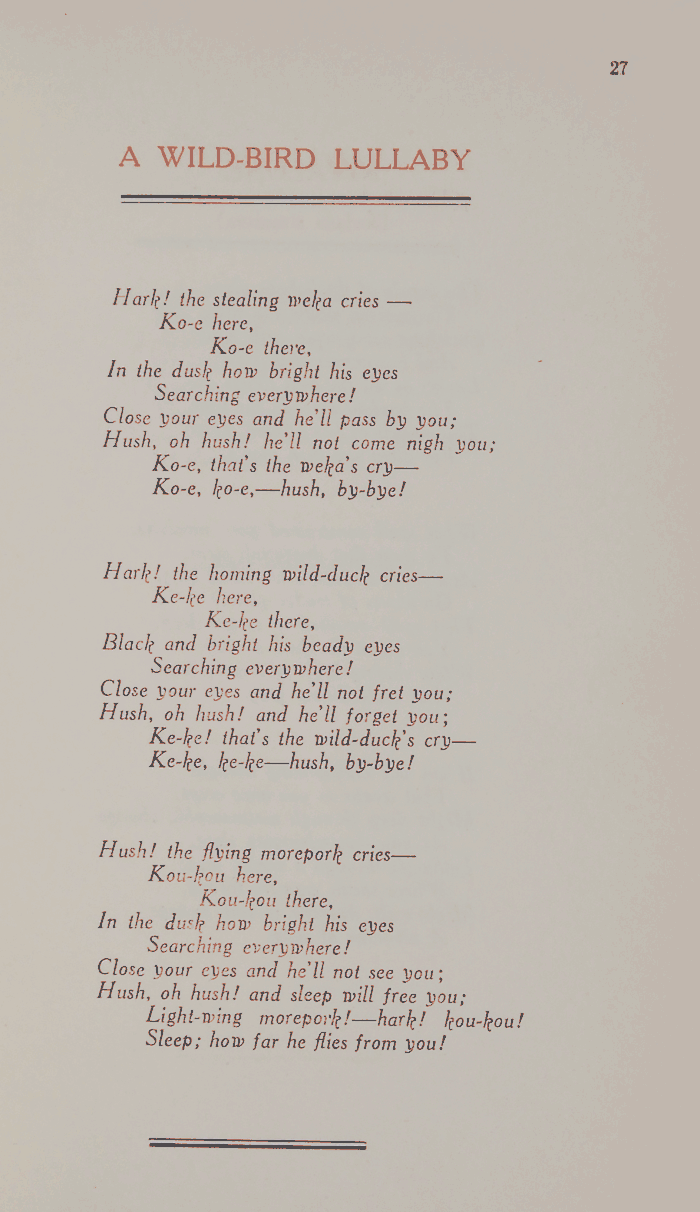 27
A WILD-BIRD LULLABY
Hark! the stealing weka cries —
Ko-e here,
Ko-e there,
In the dusk how bright his eyes
Searching everywhere!
Close your eyes and he'll pass by you;
Hush, oh hush! he'll not come nigh you;
Ko-e, that's the weka's cry—
Ko-e, ko-e,—hush, by-bye!
Hark! the homing wild-duck cries—
Ke-ke here,
Ke-ke there,
Black and bright his beady eyes
Searching everywhere!
Close your eyes and he'll not fret you;
Hush, oh hush! and he'll forget you;
Ke-ke! that's the wild-duck's cry—
Ke-ke, ke-ke—hush, by-bye!
Hush! the flying morepork cries—
Kou-kou here,
Kou-kou there,
In the dusk how bright his eyes
Searching everywhere!
Close your eyes and he'll not see you;
Hush, oh hush! and sleep will free you;
Light-wing morepork!—hark! kou-kou!
Sleep; how far he flies from you!